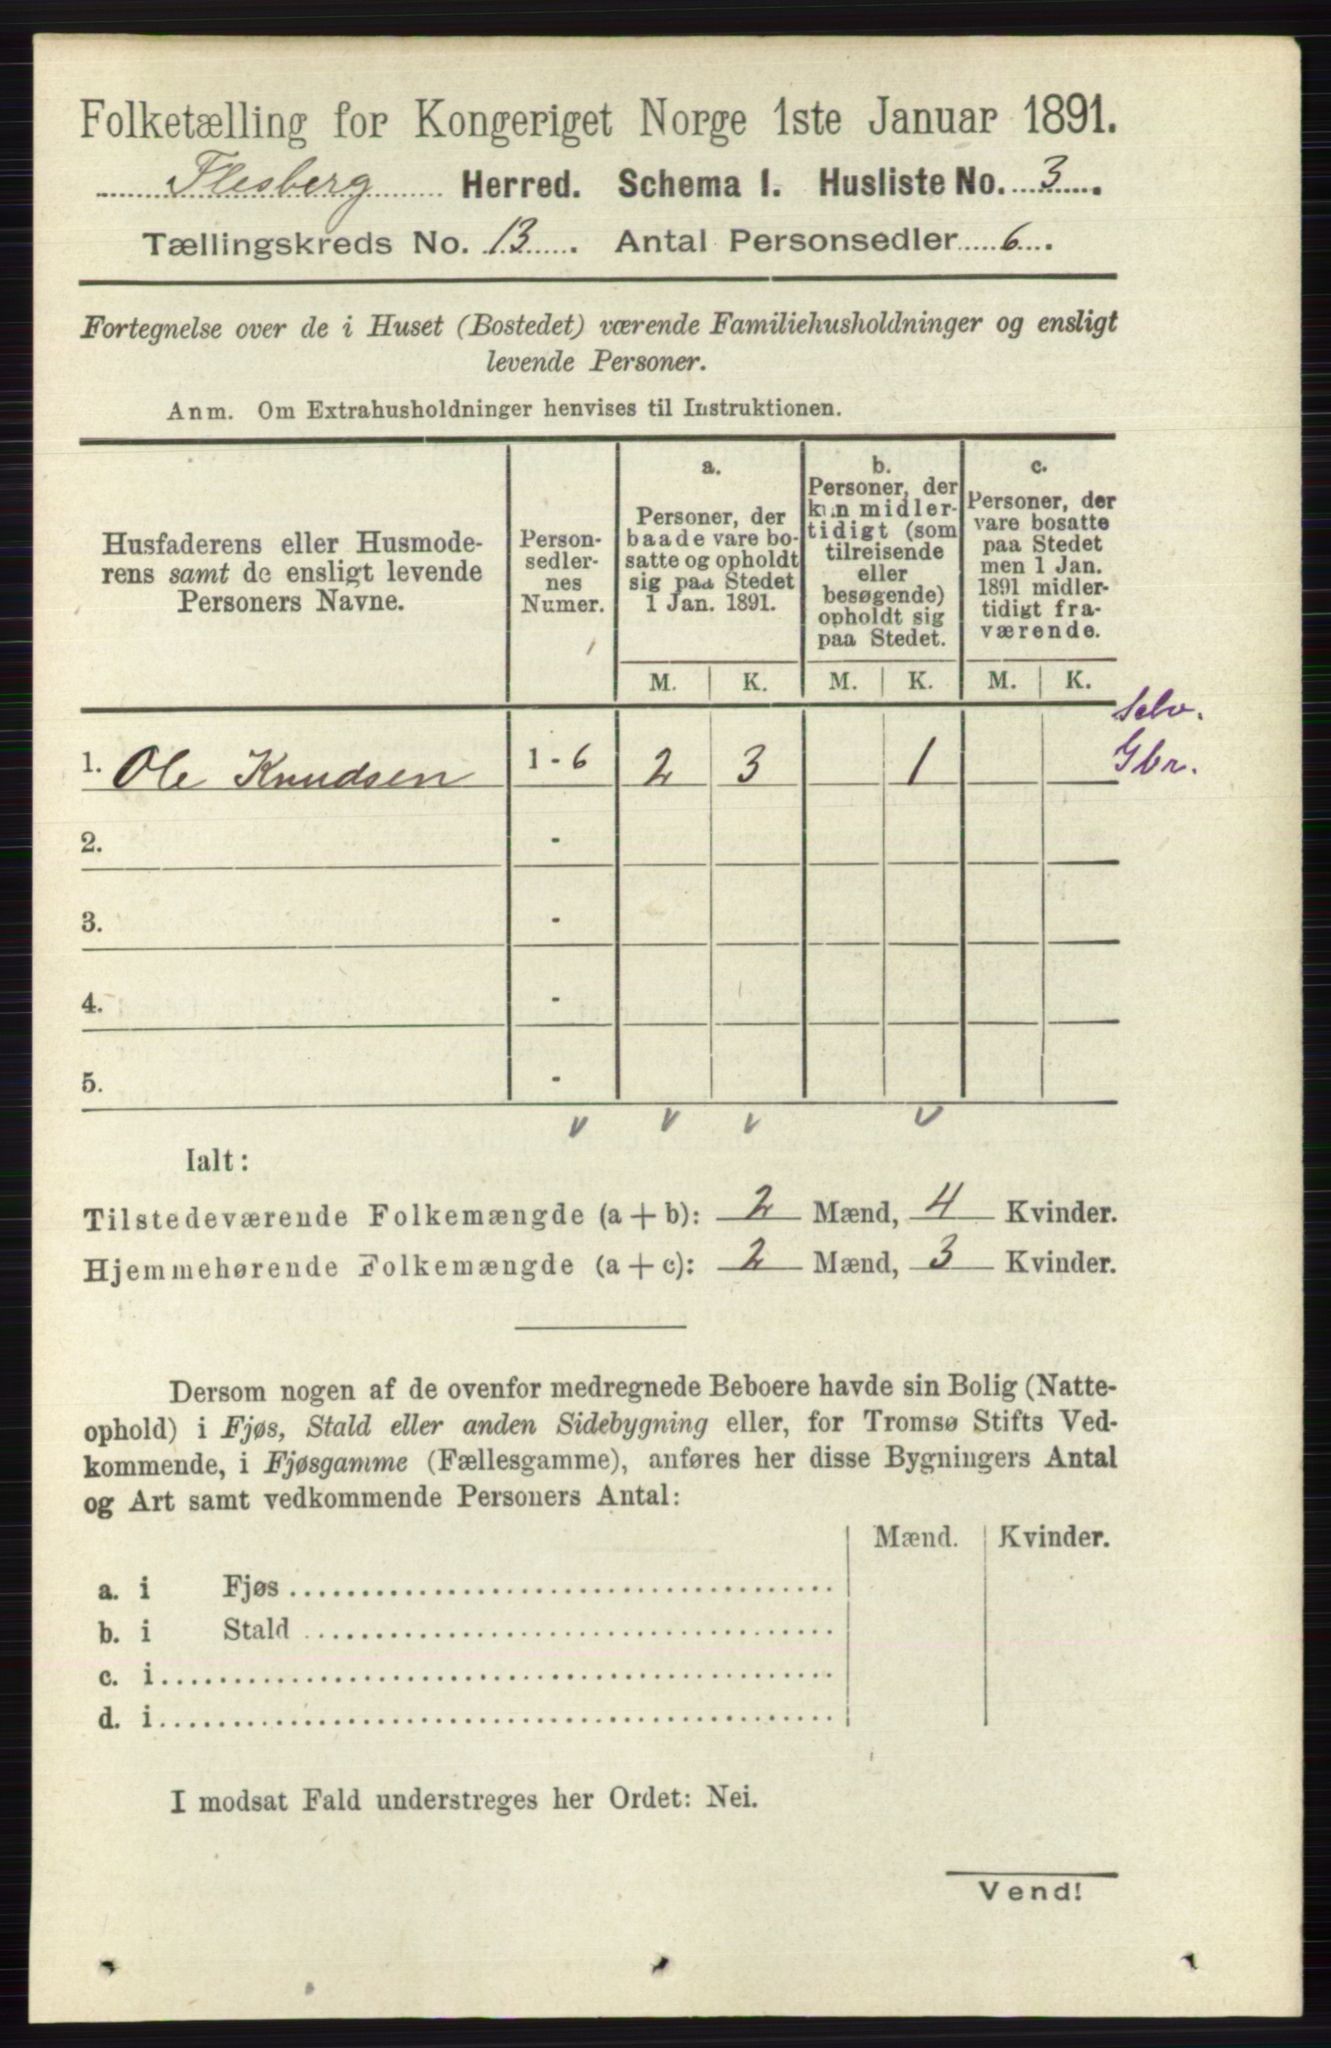 Folketælling for Kongeriget Norge 1ste Januar 1891.
Flesberg Herred. Schema 1. Husliste No. 3.
Tællingskreds No. 13. Antal Personsedler 6.
Fortegnelse over de i Huset (Bostedet) værende Familiehusholdninger og ensligt
levende Personer.
Anm. Om Extrahusholdninger henvises til Instruktionen.
Husfaderens eller Husmode-
rens samt de ensligt levende
Personers Navne.
Person-
sedler-
nes
Numer.
a.
Personer, der
baade vare bo-
satte og opholdt
sig paa Stedet
1 Jan. 1891.
b.
Personer, der
kun midler-
tidigt (som
tilreisende
eller
besøgende)
opholdt sig
paa Stedet.
c.
Personer, der
vare bosatte
paa Stedet
men 1 Jan.
1891 midler-
tidigt fra-
værende.
M. K. M. K. M. K.
Selv.
Gbr.
1. Ole Knudsen 1-6 2 3 1
2. -
3. -
4. -
5. -
v v v v
Ialt:
Tilstedeværende Folkemængde (a + b): 2 Mænd, 4 Kvinder.
Hjemmehørende Folkemængde (a + c): 2 Mænd, 3 Kvinder.
Dersom nogen af de ovenfor medregnede Beboere havde sin Bolig (Natte-
ophold) i Fjøs, Stald eller anden Sidebygning eller, for Tromsø Stifts Ved-
kommende, i Fjøsgamme (Fællesgamme), anføres her disse Bygningers Antal
og Art samt vedkommende Personers Antal:
Mænd. Kvinder.
a. i Fjøs
b. i Stald
c. i
d. i
I modsat Fald understreges her Ordet: Nei.
Vend!